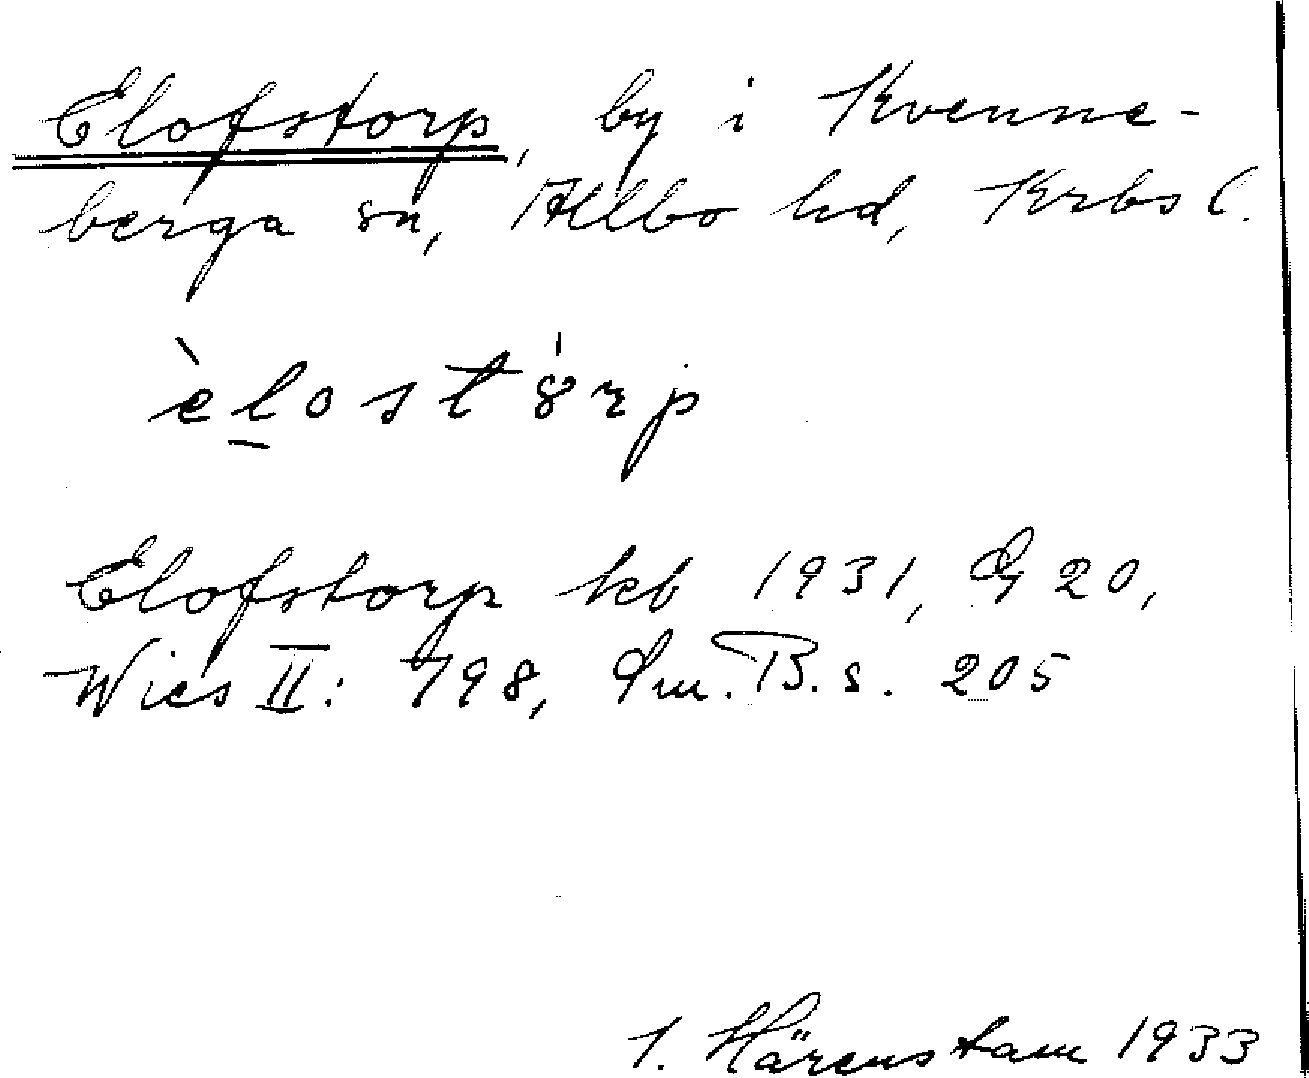 Elofstorp, by i Kvenne-
berga sn, Allbo hd, Krbs l.
èlostörp
Elofstorp kb 1931, G 20,
Wies II: 798, Sm. B. s. 205
I. Härenstam 1933